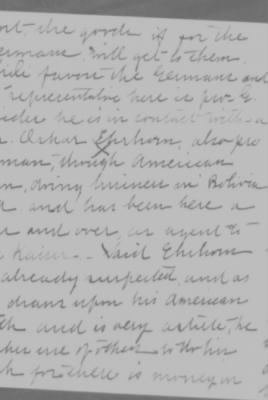 the goods is for the
Germans will get to them.
favors the Germans and
representative here is pro G.
he is in contact with a
Oskar Ehrhorn, also pro
man, though American
, doing business in Bolivia
and has been here a
and over, as agent to
Kaiser. - Said Ehrhorn
already suspected and as
draws upon his American
and is very astute, he
use of others to do his
for there is money in